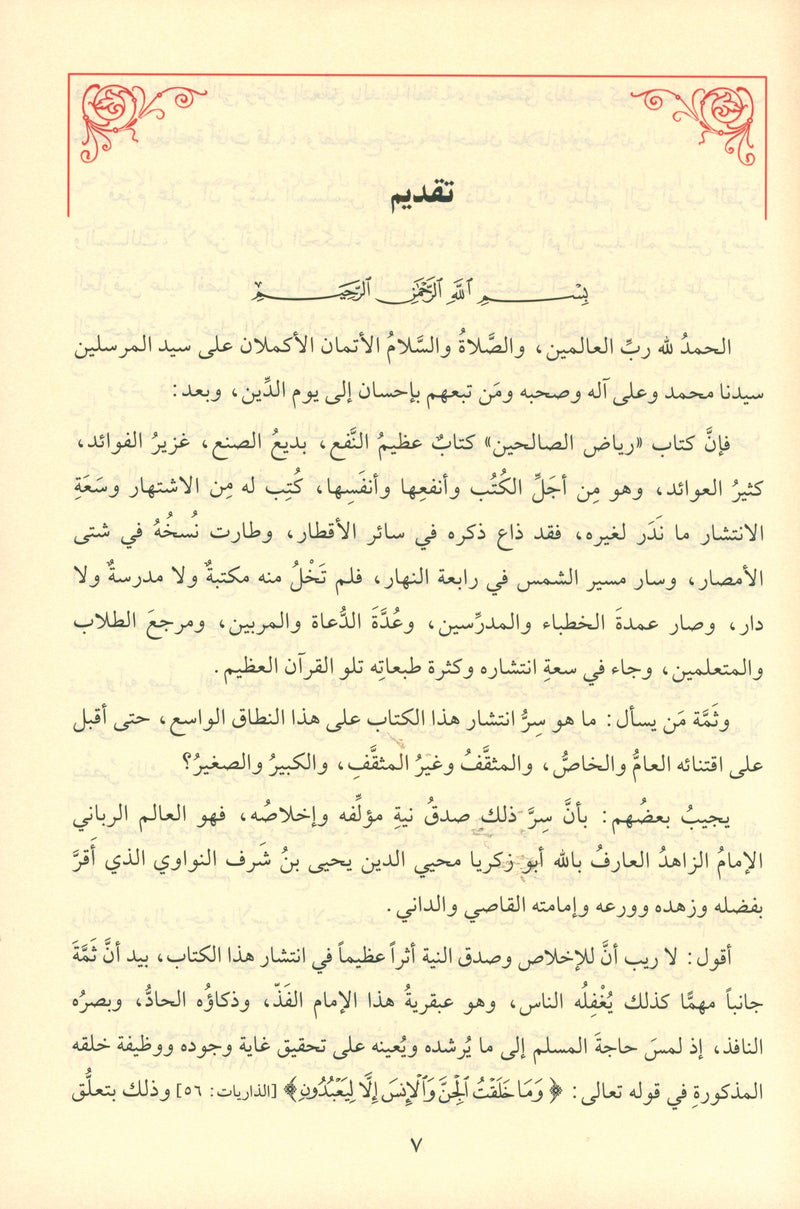 تقديم
بِسْمِ ٱللَّهِ ٱلرَّحْمَٰنِ ٱلرَّحِيمِ
الحمدُ لله ربِّ العالمين، والصَّلاةُ والسَّلامُ الأتمان الأكملان على سيد المرسلين
سيدنا محمد وعلى آله وصحبه ومَن تبعهم بإحسان إلى يوم الدِّين، وبعد:
فإنَّ كتاب «رياض الصالحين» كتابٌ عظيمُ النَّفع، بديعُ الصنع، غزيرُ الفوائد،
كثيرُ العوائد، وهو مِن أجَلِّ الكُتُب وأنفعِها وأنفَسِها، كُتِب له مِن الاشتهار وسَعَةِ
الانتشار ما نَدَر لغيره، فقد ذاع ذكره في سائر الأقطار، وطارت نُسخُهُ في شتى
الأمصار، وسار مسير الشمس في رابعة النهار، فلم تَخْلُ منه مكتبةٌ ولا مدرسةٌ ولا
دار، وصار عمدةَ الخطباء والمدرِّسين، وعُدَّةَ الدُّعاة والمربين، ومرجعَ الطلاب
والمتعلمين، وجاء في سعةِ انتشاره وكثرة طبعاتِه تلو القرآن العظيم.
وثَمَّة مَن يسأل: ما هو سِرُّ انتشار هذا الكتاب على هذا النطاق الواسع، حتى أقبل
على اقتنائه العامُّ والخاصُّ، والمثقَّفُ وغيرُ المثقَّفِ، والكبيرُ والصغيرُ؟
يجيبُ بعضُهم: بأنَّ سِرَّ ذلك صدقُ نيةِ مؤلِّفه وإخلاصُه، فهو العالم الرباني
الإمامُ الزاهدُ العارفُ بالله أبو زكريا محيي الدين يحيى بنُ شَرف النواوي الذي أَقرَّ
بفضله وزهده وورعه وإمامته القاصي والداني.
أقول: لا ريب أنَّ للإخلاص وصدق النية أثراً عظيماً في انتشار هذا الكتاب، بيد أنَّ ثَمَّةَ
جانباً مهمًّا كذلك يُغْفِلُه الناس، وهو عبقريةُ هذا الإمام الفَذّ، وذكاؤُه الحادُّ، وبصرُه
النافذ، إذ لمسَ حاجةَ المسلم إلى ما يُرشده ويُعينه على تحقيق غاية وجوده ووظيفة خلقه
المذكورةِ في قوله تعالى: ﴿وَمَا خَلَقْتُ ٱلْجِنَّ وَٱلْإِنسَ إِلَّا لِيَعْبُدُونِ﴾ [الذاريات: ٥٦] وذلك بتعلُّق
٧